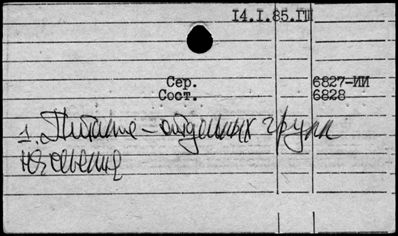 14.I.85.ГП
Сер. 6827-ИИ
Сост. 6828
1. Питание - отдельных групп
населения